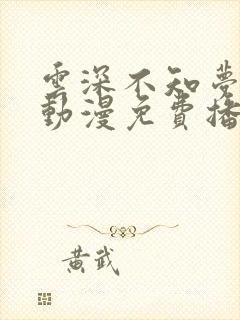 雲深不知夢
動漫免費播
黃武